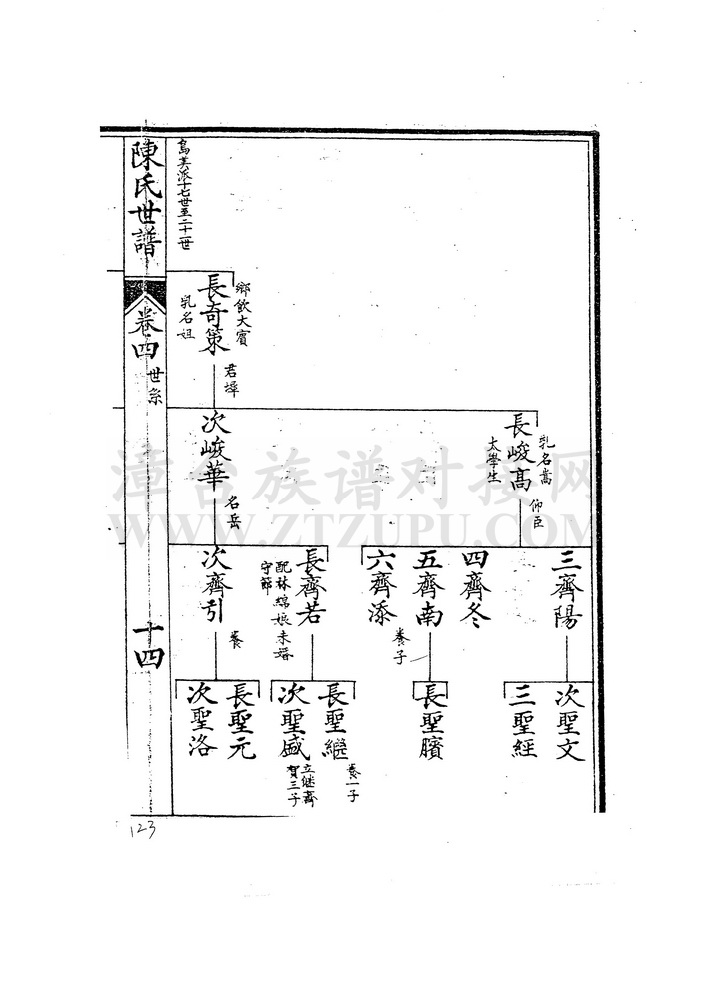 陳氏世譜
卷四
世系
十四
烏美派十七世至二十一世
長奇策
鄉飲大賓
乳名姐
君墀
長峻髙
乳名嵩
太學生
仰臣
次峻華
名岳
三齊陽
四齊冬
五齊南
養子
六齊添
長齊若
配林綿娘未婚
守節
次齊引
養
次聖文
三聖經
長聖臏
長聖繼
養一子
次聖盛
立继齊
賀三子
長聖元
次聖洛
漳台族谱对接网
WWW.ZTZUPU.COM
123